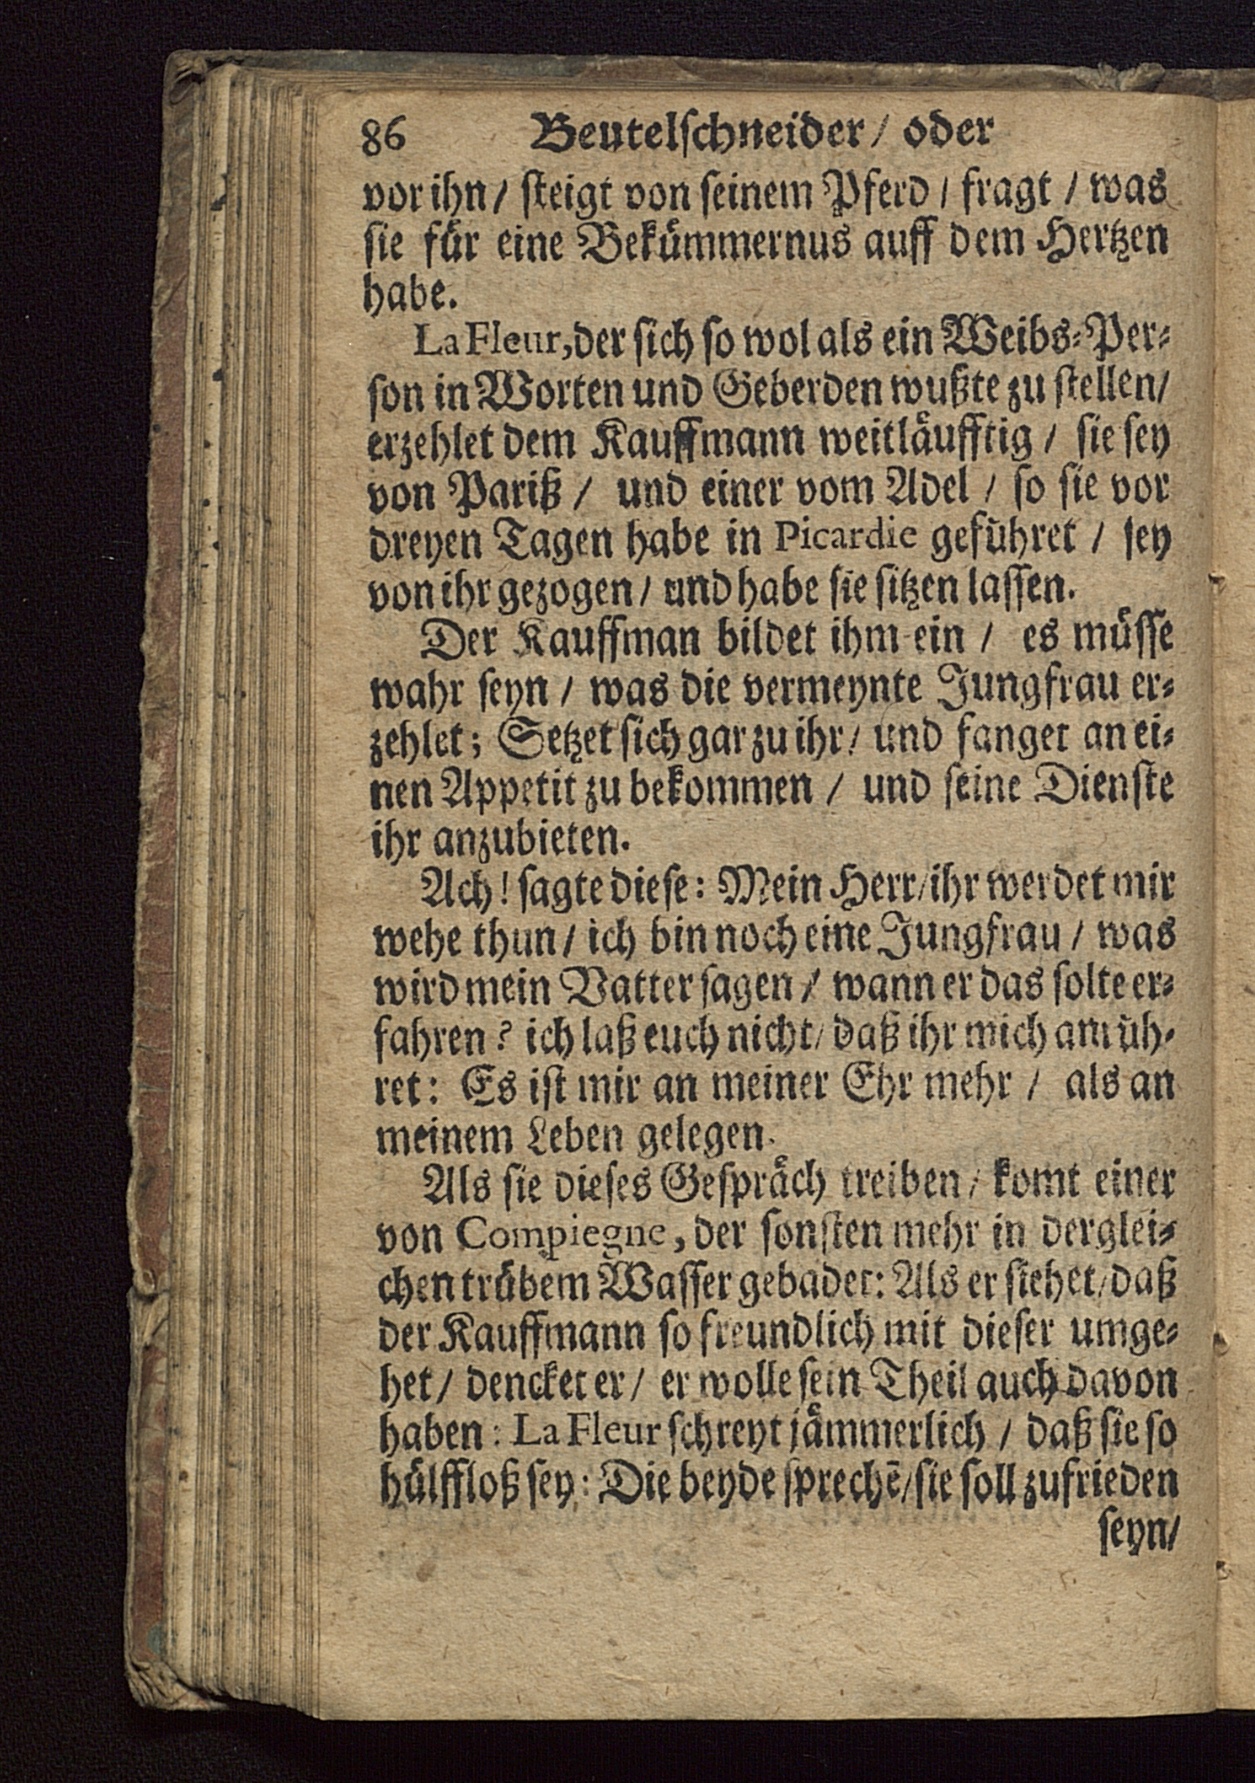 86 Beutelschneider / oder
vor ihn / steigt von seinem Pferd / fragt / was
sie für eine Bekümmernus auff dem Hertzen
habe.
La Fleur, der sich so wol als ein Weibs-Per-
son in Worten und Geberden wußte zu stellen /
erzehlet dem Kauffmann weitläufftig / sie sey
von Pariß / und einer vom Adel / so sie vor
dreyen Tagen habe in Picardie geführet / sey
von ihr gezogen / und habe sie sitzen lassen.
Der Kauffman bildet ihm ein / es müsse
wahr seyn / was die vermeynte Jungfrau er-
zehlet; Setzet sich gar zu ihr / und fanget an ei-
nen Appetit zu bekommen / und seine Dienste
ihr anzubieten.
Ach! sagte diese: Mein Herr / ihr werdet mir
wehe thun / ich bin noch eine Jungfrau / was
wird mein Vatter sagen / wann er das solte er-
fahren? ich laß euch nicht / daß ihr mich anrüh-
ret: Es ist mir an meiner Ehr mehr / als an
meinem Leben gelegen.
Als sie dieses Gespräch treiben / komt einer
von Compiegne, der sonsten mehr in derglei-
chen trübem Wasser gebadet: Als er siehet / daß
der Kauffmann so freundlich mit dieser umge-
het / dencket er / er wolle sein Theil auch davon
haben: La Fleur schreyt jämmerlich / daß sie so
hülffloß sey: Die beyde sprechē / sie soll zufrieden
seyn /